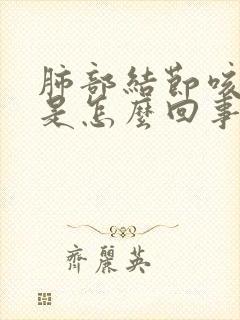 肺部結節咳
是怎麼回事
齊麗英